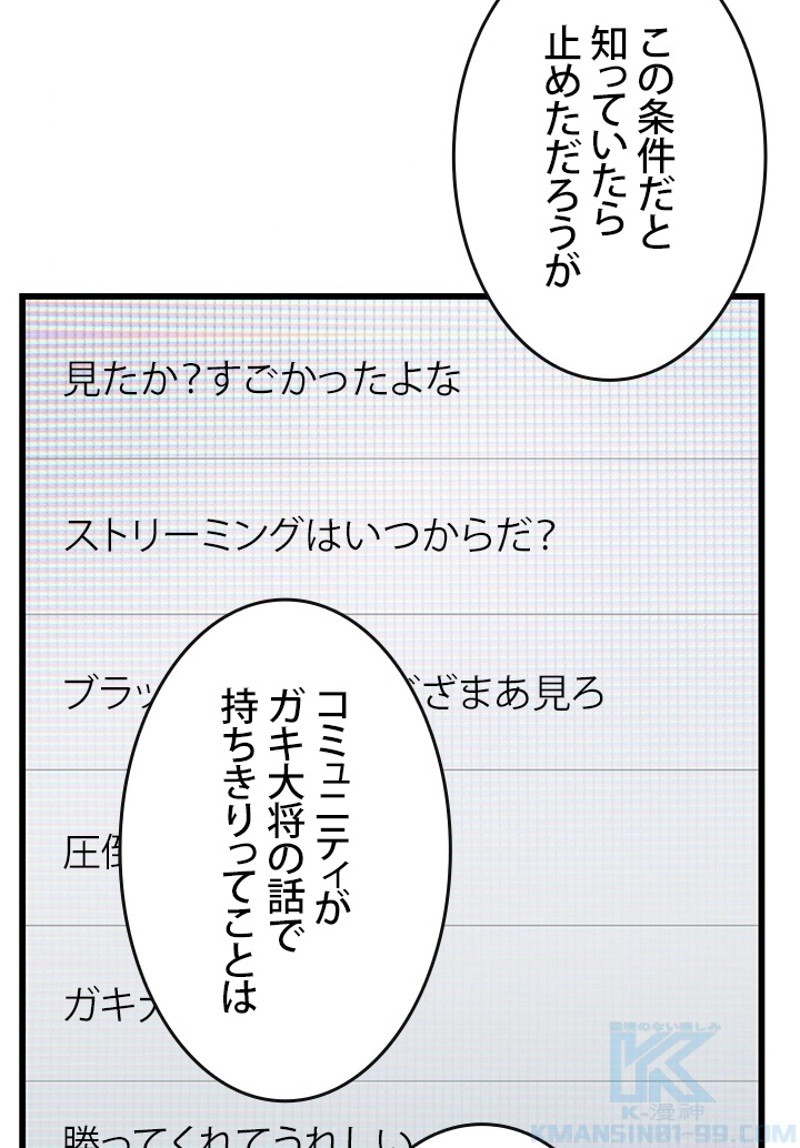 この条件だと
知っていたら
止めただろうが
見たか？すごかったよな
ストリーミングはいつからだ？
ブラッ
ざまあ見ろ
コミュニティが
ガキ大将の話で
持ちきりってことは
圧倒
ガキ大
勝ってくれてうれしい
K-漫神
KMANSIN01-99.COM